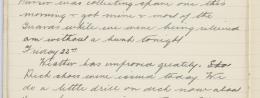 was collecting spare ones this
morning & got mine & most of the
Guards while we were being relieved
am without a hunk tonight
Friday 22nd
Weather has improved greatly.
Deck shoes were issued today. We
do a little drill on deck now also